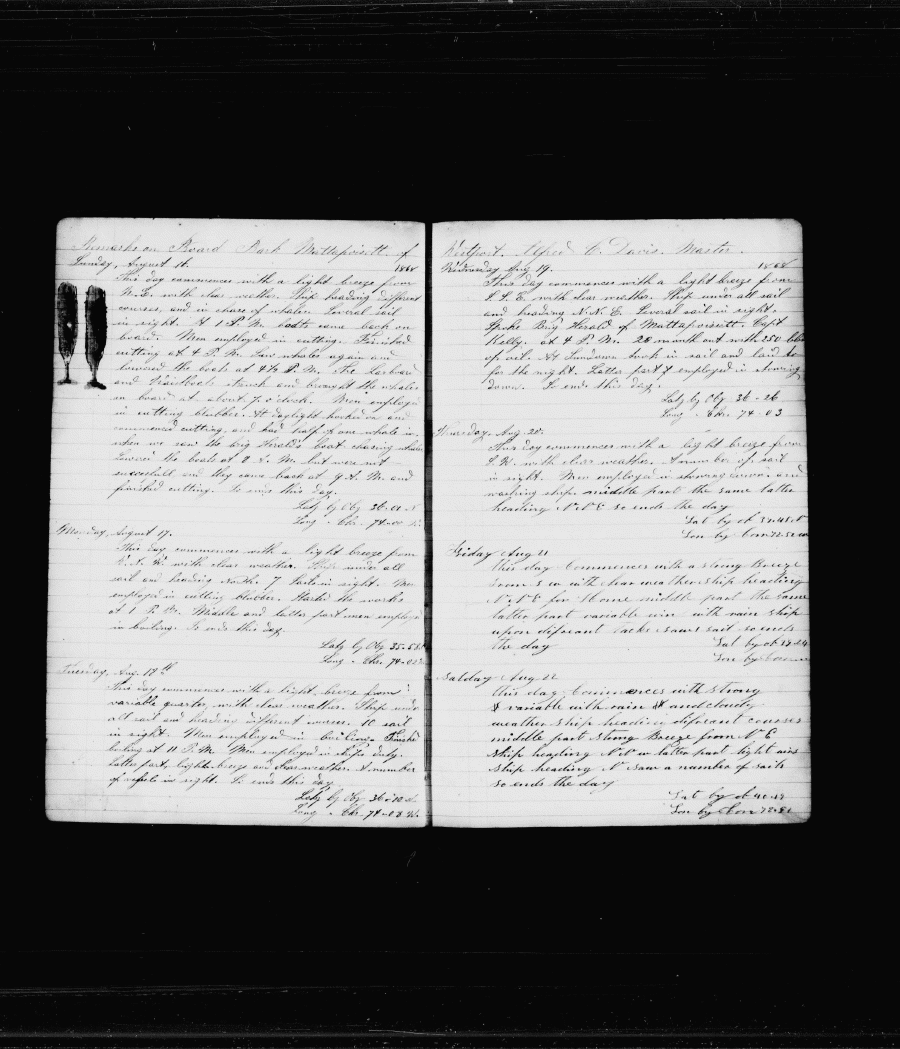 Remarks on Board Bark Mattapoisett of
Sunday, August 16. 1868
This day commences with a light breeze from
N.E. with clear weather. Ship heading different
courses, and in chase of whales. Several sail
in sight. At 1 P.M. boats came back on
board. Men employed in cutting. Finished
cutting at 4 P.M. Saw whales again and
lowered the boats at 4½ P.M. The Larboard
and Waistboat struck and brought the whales
on board at about 7 o'clock. Men employed
in cutting blubber. At daylight hooked on and
commenced cutting, and had half of one whale in
when we saw the Brig Herald's boat chasing whales
Lowered the boats at 8 A.M. but were not
successfull and they came back at 9 A.M. and
finished cutting. So ends this day.
Lat by Obs 36-01 N
Long " Chr. 74-00
Monday, August 17.
This day commences with a light breeze from
with clear weather. Ship under all
sail and heading North. 7 sail in sight. Men
employed in cutting blubber. Started the works
at 1 P.M. Middle and latter part men employed
in boiling. So ends this day.
Lat by Obs 35-58
Long " Chr. 74-02
Tuesday, Aug. 18th
This day commences with a light breeze from
variable quarter, with clear weather. Ship under
all sail and heading different courses. 10 sail
in sight. Men employed in boiling. Finished
boiling at 11 P.M. Men employed in ship's duty.
Latter part, light breeze and clear weather. A number
of in sight. So ends this day
Lat by Obs 36-10
Long " Chr. 74-03 W.
Westport. Alfred C. Davis. Master.
Wednesday Aug 19. 1868
This day commences with a light breeze from
S.S.E. with clear weather. Ship under all sail
and heading N.N.E. Several sail in sight.
Spoke Brig Herald of Mattapoisett. Capt
Kelly. at 4 P.M. 26 month out with 250 bbls
of oil. At Sundown took in sail and laid to
for the night. Latter part employed in stowing
down. So ends this day.
Lat by Obs 36-26
Long " Chr. 74-03
Thursday, Aug. 20.
This day commences with a light breeze from
S.W. with clear weather. A number of sail
in sight. Men employed in stowing down and
washing ship. middle part the same latter
heading N.N.E so ends the day
Lat by ob 37-48 N
Lon by Crom 72-52
Friday Aug 21
this day Commences with a strong Breeze
from S W with clear weather ship heading
N.N.E for Home middle part the same
latter part variable wind with rain ship
upon diferant tacks saw 1 sail so ends
the day Lat by ob 39-24
Lon by Crom
Satday Aug 22
this day Commences with strong
& variable with rain & and cloudy
weather ship heading diferant courses
middle part strong Breeze from N E
ship heading N N W latter part light airs
ship heading N saw a number of sails
so ends the day
Lat by ob 40-19
Lon by Crom 72-51